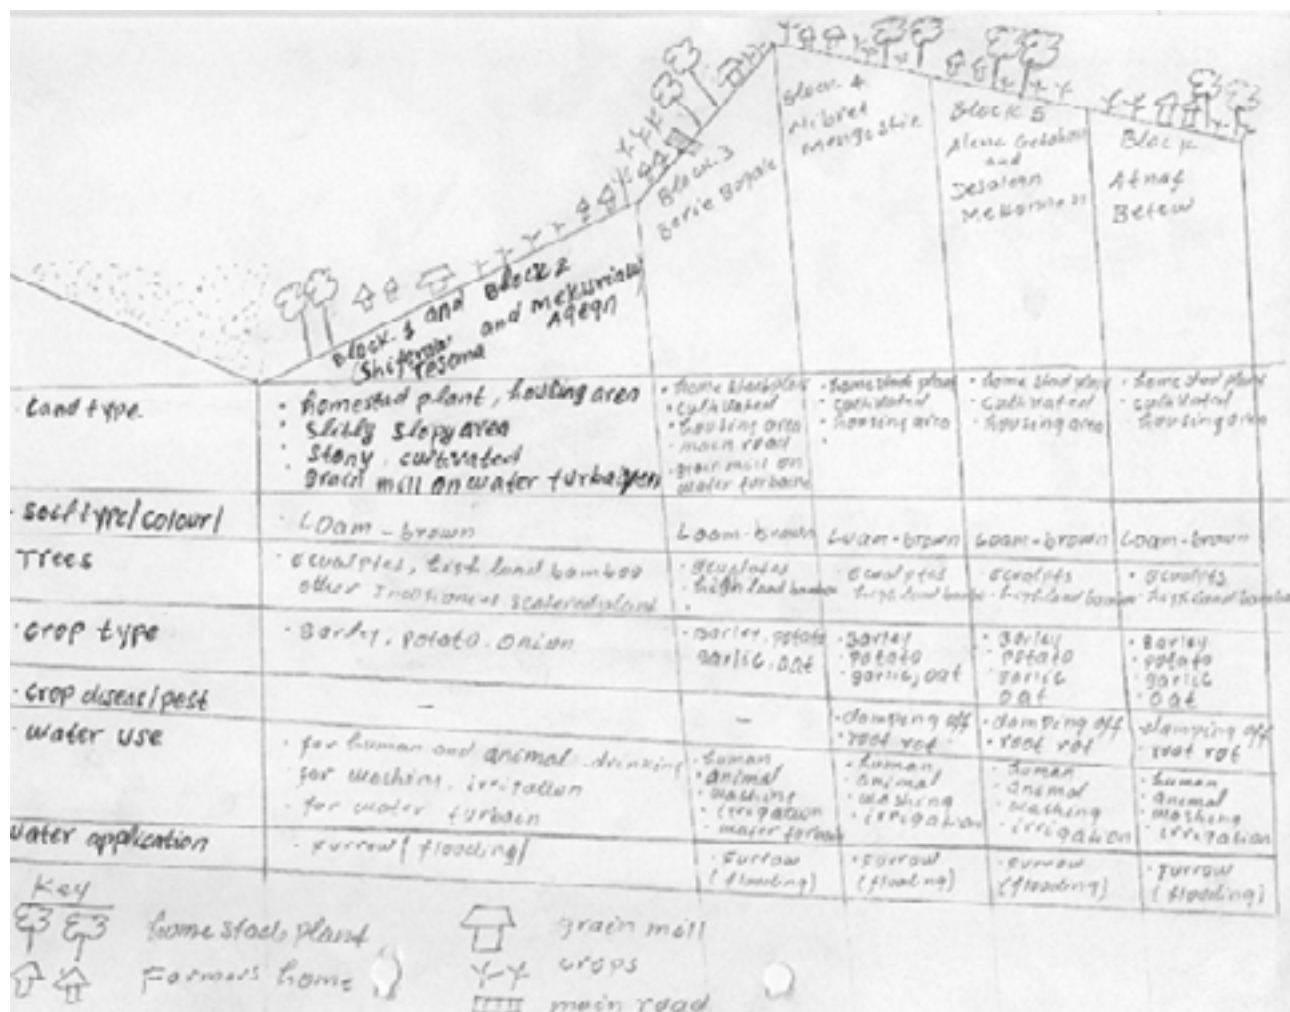 Block 4
Nibret
Mengistie
Block 5
and
Desalegn
Block
Atnaf
Betew
Block 3
Berie Bogale
Block 1 and Block 2
(Shiferaw and Mekuriaw
Tesema
Land type
• homestad plant, housing area
• slitly slopy area
stony, cultivated
grain mill on water turbaipen
• home stack plant
• cultivated
• housing area
- main road
- grain mill on
water turbaine
• home stad plant
• cultivated
• housing area
• home stad plant
• cultivated
• housing area
• home stad plant
• cultivated
• housing area
soil type/colour/
• Loam - brown
Loam - brown
Loam - brown
Loam - brown
Loam - brown
Trees
• Ecualptes, high land bamboo
other scatered plant
• highland bamboo
• Ecualptes
highland bamboo
• highland bamboo
• highland bamboo
• crop type
• Barley, potato, onion
• Barley, potato
garlic, oat
• Barley
• potato
• garlic, oat
• Barley
• potato
garlic
oat
• Barley
• potato
• garlic
• oat
• crop diseas/pest
-
-
• damping off
• root rot
• damping off
• root rot
• damping off
• root rot
• water use
• for human and animal drinking
• for washing, irrigation
• for water turbain
• human
• animal
• washing
• irrigation
- water turbain
• human
• animal
• washing
• irrigation
• human
• animal
• washing
• irrigation
• human
• animal
washing
• irrigation
water application
• furrow (flooding)
• Furrow
(flooding)
• Furrow
(flooding)
• Furrow
(flooding)
• Furrow
(flooding)
Key
home stack plant
grain mell
Farmers home
crops
main road